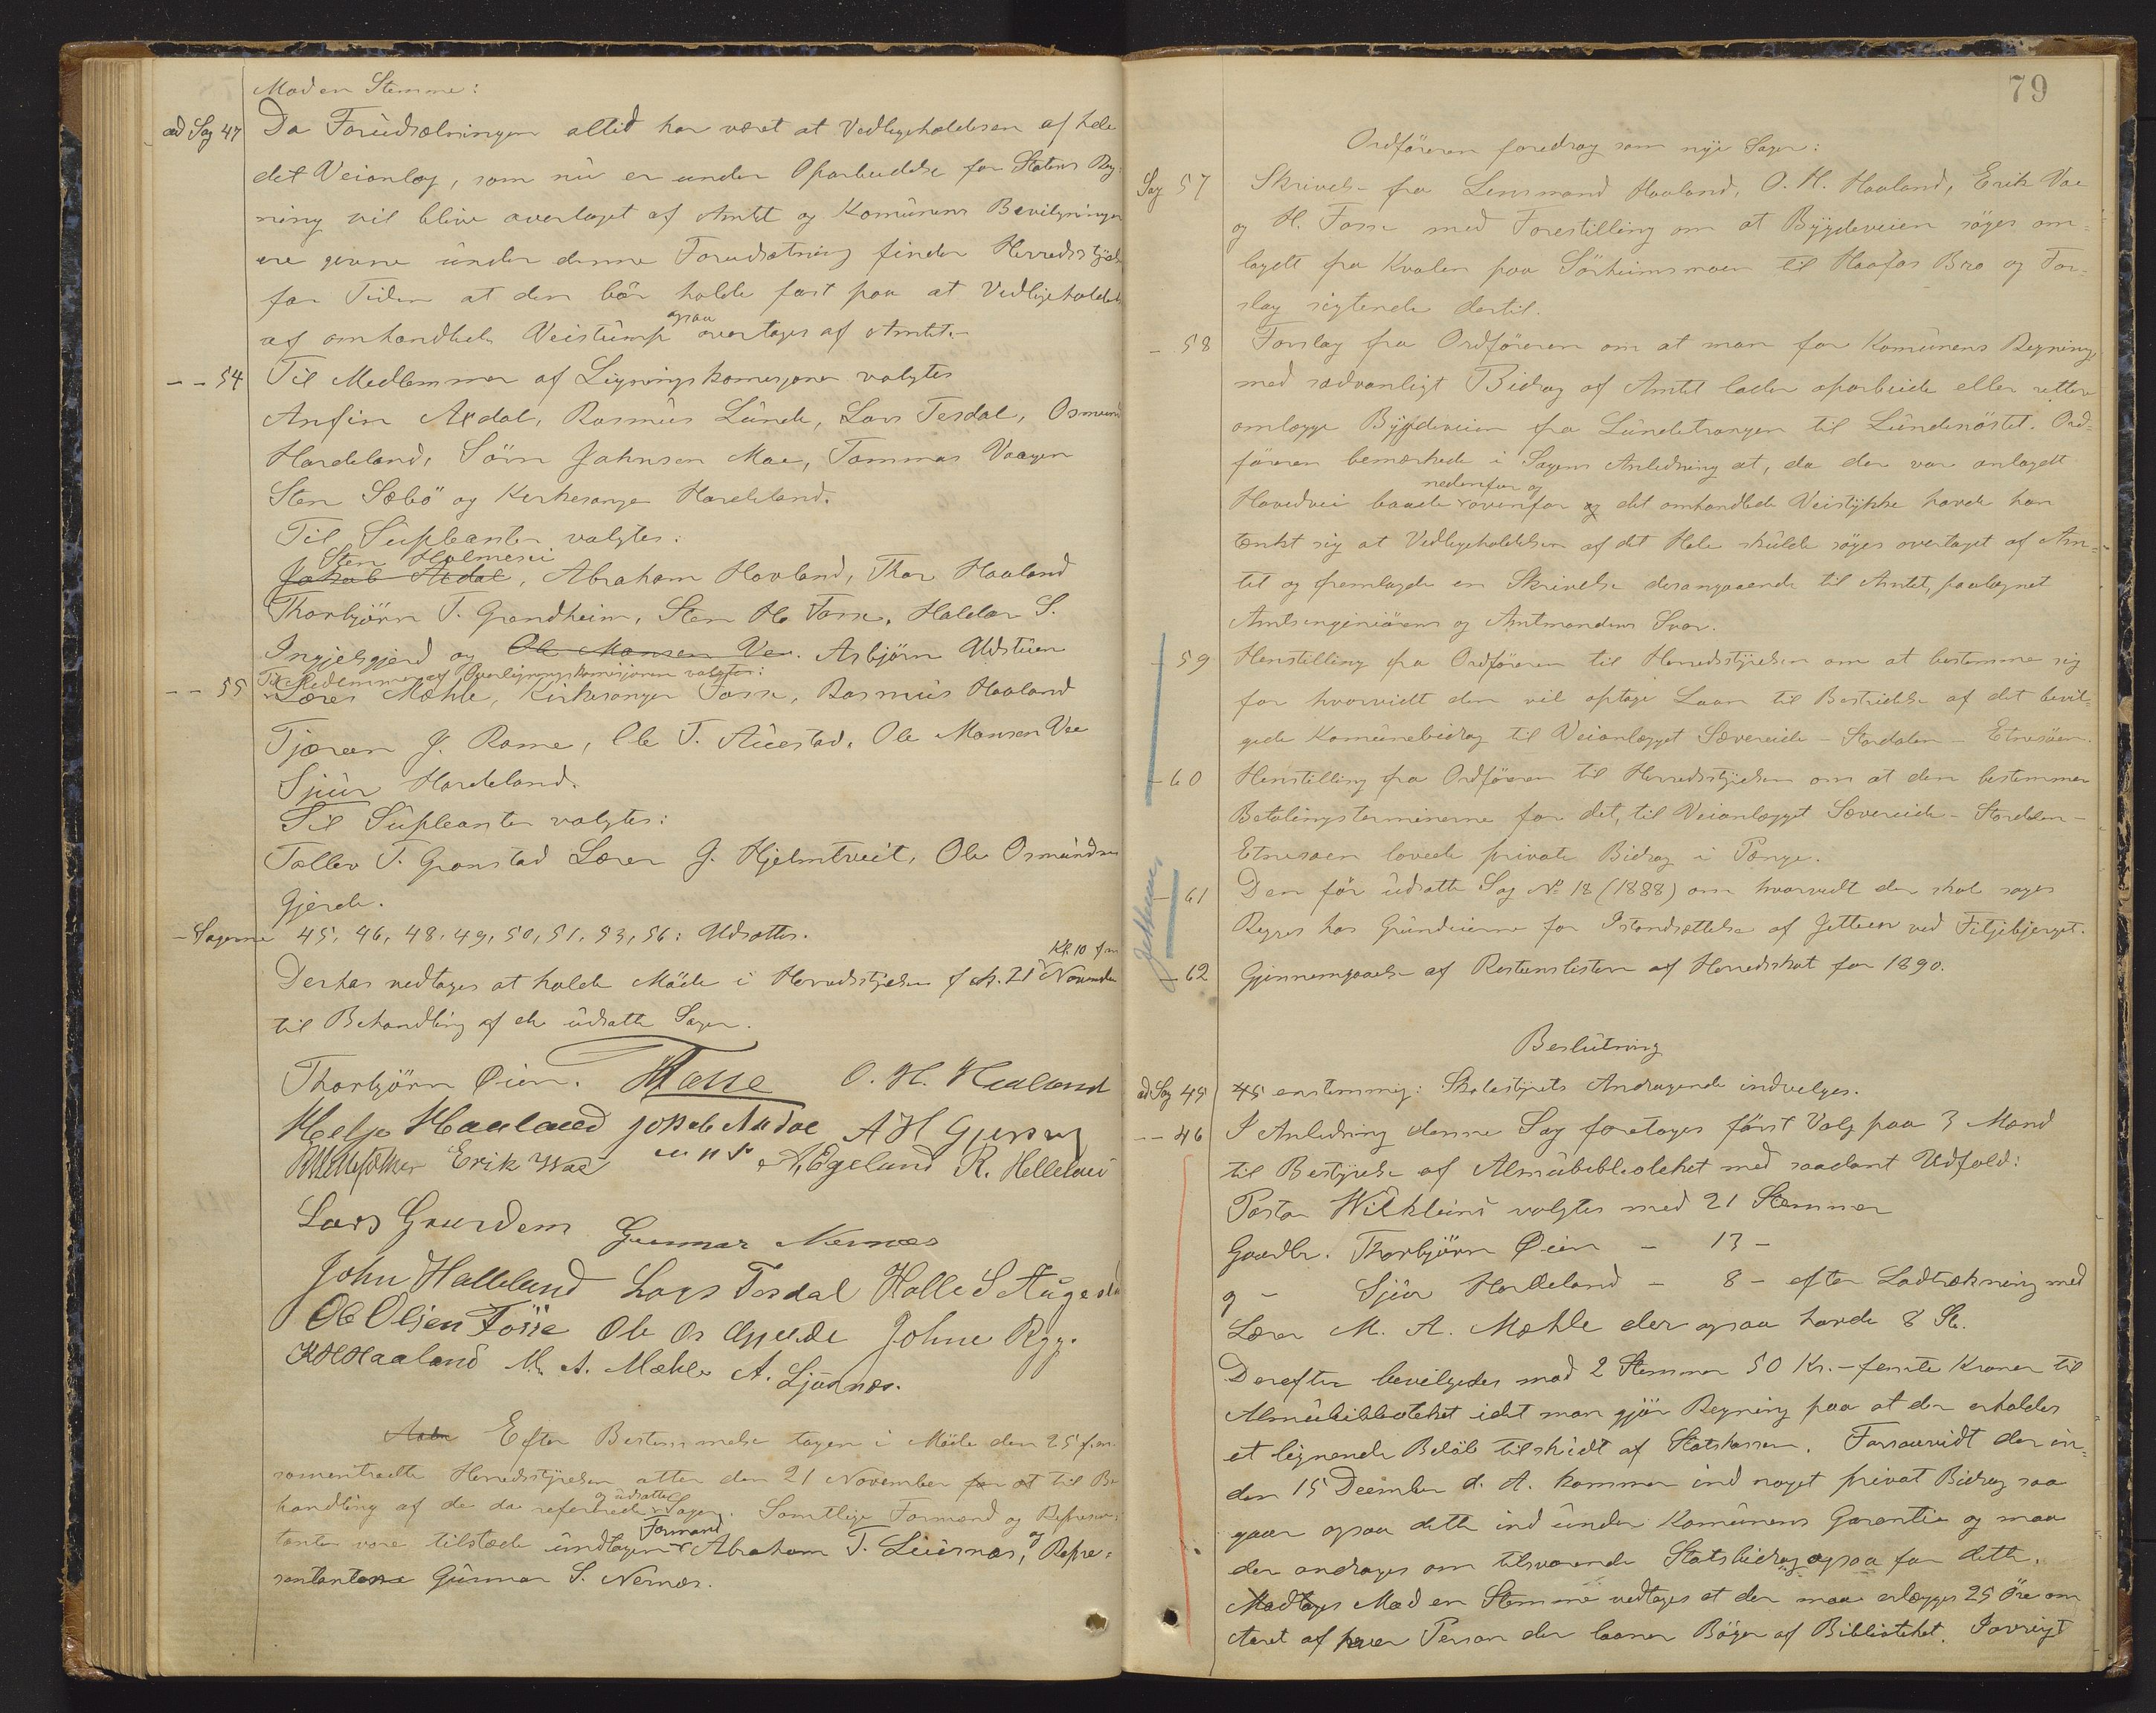 Mod en Stemme:
ad Sag 47 Da Forudsætningen altid har været at Vedligeholdelsen af hele
det Veianlæg, som nu er under Oparbeidelse for Statens Reg-
ning vil blive overtaget af Amtet og Komunens Bevilgninger
ere givne under denne Forudsætning finder Herredsstyrels
for Tiden at den bør holde fast paa at Vedligeholdels
af omhandlede Veistump ogsaa overtages af Amtet.-
- - 54 Til Medlemmer af Ligningskomisjonen valgtes
Anfin Axdal, Rasmus Lunde, Lars Tesdal, Osmund
Hardeland, Sörn Johnsen Mæe, Tommas Vaagen
Sten Sæbö og Kirkesanger Hardeland.
Til Supleanter valgtes:
Sten Holmeseii
Jakob Aedal, Abraham Hovland, Thor Haaland
Thorbjörn T. Grendheim, Sten H. Fosse, Haldor S.
Ingjelsgjerd og Ole Monsen Vee. Asbjörn Udstuen
Til Medlemmer af Overligningskomisjonen valgtes:
- - 55 Lærer Mæhle, Kirkesanger Fosse, Rasmus Haaland
Tjæran J. Rame, Ole T. Auestad, Ole Monsen Vee
Sjur Hardeland.
Til Supleanter valgtes:
Tollev T. Gronstad Lærer J. Hjelmtveit, Ole Osmundsen
Gjerde.
- Sagerne 45, 46, 48, 49, 50, 51, 53, 56: Udsættes.
Derhos vedtages at holde Möde i Herredsstyrelsen f. k. 21 Kl. 10 fm November
til Behandling af de udsatte Sager.
Thorbjörn Øien. H Fosse O. H. Haaland
Helje Haaland Jokob Aadal A H Gjerse
Erik Wae A. Egeland R. Helleland
Lars Grindem Gunnar Nernæs
John Halleland Lars Tesdal Halle S Augestad
Ole Olsen Fosse Ole Os Gjerde Johne Rygg.
K H Haaland M. A. Mæhle A. Ljösnæs.
Efter Bestemmelse tagen i Möde den 25 f.m.
samentraadte Herredsstyrelsen atter den 21 November for at til Be-
handling af de da refererede og udsatte Sager. Samtlige Formænd og Repræsen-
tanter vare tilstæde undtagen Formand Abraham T. Leiesnæs, og Repræ-
sentanterne Gunnar S. Nernæs.
79
Ordföreren foredrog som nye Sager:
Sag 57 Skrivelse fra Lensmand Haaland, O. H. Haaland, Erik Vae
og H. Fosse med Forestilling om at Bygdeveien söges om-
lagdt fra Kvalen paa Sörheimsmoen til Haafos Bro og For-
slag sigtende dertil.
- 58 Forslag fra Ordföreren om at man for Komunens Regning
med sædvanligt Bidrag af Amtet lader oparbeide eller rettere
omlægge Bygdeveien fra Lundetrangen til Lundenöstet. Ord-
föreren bemærkede i Sagens Anledning at, da der var anlagdt
Hovedvei baade nedenfor og ovenfor og det omhandlede Veistykke havde han
tænkt sig at Vedligeholdelsen af det Hele skulde söges overtaget af Am-
tet og fremlagde en Skrivelse derangaaende til Amtet, paategnet
Amtsingeniörens og Amtmandens Svar.
- 59 Henstilling fra Ordföreren til Herredsstyrelsen om at bestemme sig
for hvorvidt den vil optage Laan til Bestridelse af det bevil-
gede Komunebidrag til Veianlægget Sævereide - Stordalen - Etnesöen.
- 60 Henstilling fra Ordföreren til Herredsstyrelsen om at den bestemmer
Betalingsterminerne for det, til Veianlægget Sævereide - Stordalen -
Etnesöen lovede private Bidrag i Penge.
- 61 Den för udsatte Sag No 18 (1888) om hvorvidt der skal söges
Regres hos Grundeierne for Istandsættelse af Jetteen ved Fitjebjerget.
- 62 Gjennemgaaelse af Restenslisten af Herredsskat for 1890.
Beslutning
ad Sag 45 45 enstemmig: Skolestyrets Andragende indvilges.
- - 46 I Anledning denne Sag foretages först Valg paa 3 Mænd
til Bestyrelse af Almubibliotheket med saadant Udfald:
Pastor Willkleins valgtes med 21 Stemmer
Gaardbr. Thorbjörn Øien - 13 -
og - Sjur Hardeland - 8 - efter Lodtrækning med
Lærer M. A. Mæhle der ogsaa havde 8 St.
Derefter bevilgedes mod 2 Stemmer 50 Kr. - femti Kroner til
Almubibliotheket idet man gjör Regning paa at der erholdes
et lignende Belöb tilskudt af Statskassen. Forsaavidt der in-
den 15 December d. A. kommer ind noget privat Bidrag saa
gaar ogsaa dette ind under Komunens Garantie og maa
der andrages om tilsvarende Statsbidrag ogsaa for dette.
Mod en Stemme vedtages at der maa erlægges 25 Öre om
Aaret af hver Person der laaner Böger af Bibliotheket. Iövrigt